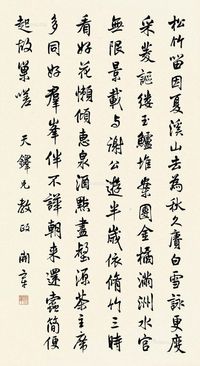 松竹留因夏溪山去為秋久賡白雪詠更度
采菱謳縷玉鱸堆案團金橘滿洲水宮
無限景載與謝公遊半歲依脩竹三時
看好花懶傾惠泉酒點盡壑源茶主席
多同好羣峯伴不譁朝來還蠹簡便
起故巢嗟 天鐸兄教政